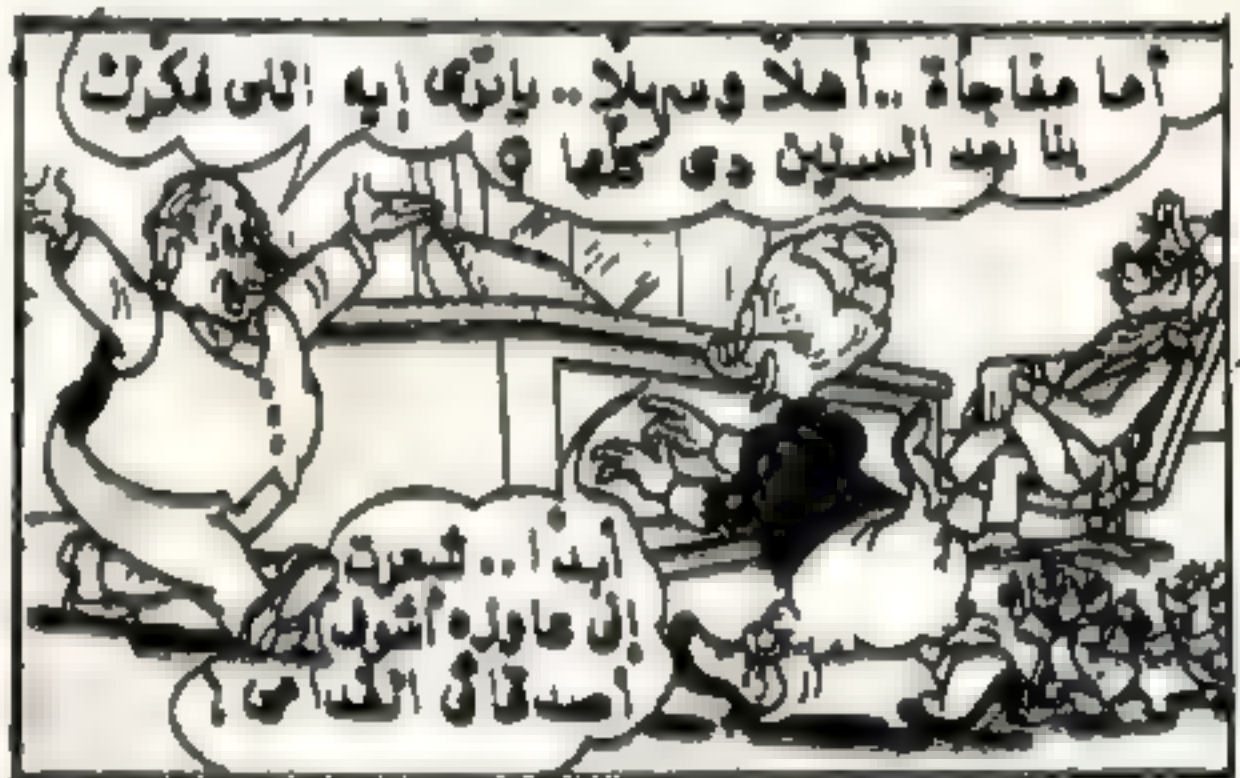 أما مفاجأة .. أهلا وسهلا .. ياترى إيه اللى فكرك
بنا بعد السنين دى كلها ؟
أبدا .. شعرت
إنى عاوزه أشوف
أصدقائى القدامى !